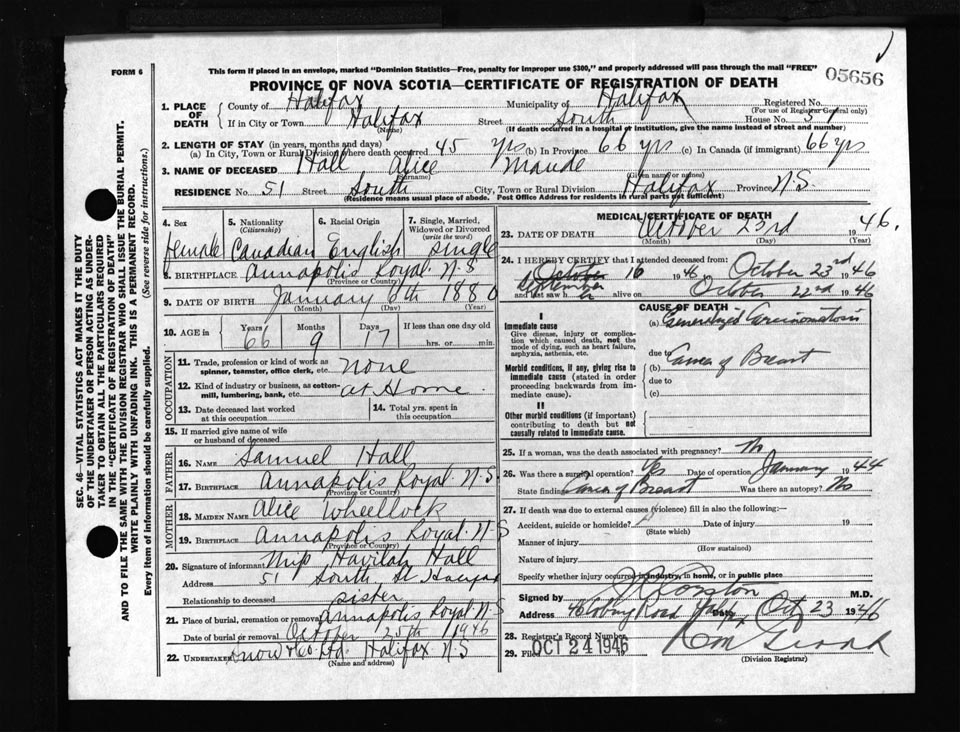 FORM 6
This form if placed in an envelope, marked "Dominion Statistics—Free, penalty for improper use $300," and properly addressed will pass through the mail "FREE"
05656
PROVINCE OF NOVA SCOTIA—CERTIFICATE OF REGISTRATION OF DEATH
1. PLACE OF DEATH { County of Halifax Municipality of Halifax Registered No.
(For use of Registrar General only)
If in City or Town Halifax Street South House No. 51
(Name) (If death occurred in a hospital or institution, give the name instead of street and number)
2. LENGTH OF STAY (in years, months and days)
(a) In City, Town or Rural Division where death occurred 45 yrs (b) In Province 66 yrs (c) In Canada (if immigrant) 66 yrs
3. NAME OF DECEASED Hall Alice Maude
(Surname) (Given name or names)
RESIDENCE No. 51 Street South City, Town or Rural Division Halifax Province N.S.
(Residence means usual place of abode. Post Office Address for residents in rural parts not sufficient)
SEC. 46—VITAL STATISTICS ACT MAKES IT THE DUTY
OF THE UNDERTAKER OR PERSON ACTING AS UNDER-
TAKER TO OBTAIN ALL THE PARTICULARS REQUIRED
IN THE "CERTIFICATE OF REGISTRATION OF DEATH"
AND TO FILE THE SAME WITH THE DIVISION REGISTRAR WHO SHALL ISSUE THE BURIAL PERMIT.
WRITE PLAINLY WITH UNFADING INK. THIS IS A PERMANENT RECORD.
Every item of information should be carefully supplied. (See reverse side for instructions.)
4. Sex 5. Nationality (Citizenship) 6. Racial Origin 7. Single, Married, Widowed or Divorced (write the word)
female Canadian English single
8. BIRTHPLACE Annapolis Royal N.S
(Province or Country)
9. DATE OF BIRTH January 6th 1880
(Month) (Day) (Year)
10. AGE in Years Months Days If less than one day old
66 9 17 hrs. or min.
OCCUPATION
11. Trade, profession or kind of work as spinner, teamster, office clerk, etc. none
12. Kind of industry or business, as cotton-mill, lumbering, bank, etc. at Home
13. Date deceased last worked at this occupation 14. Total yrs. spent in this occupation
15. If married give name of wife or husband of deceased
FATHER
16. NAME Samuel Hall
17. BIRTHPLACE Annapolis Royal N.S.
(Province or Country)
MOTHER
18. MAIDEN NAME Alice Wheellock
19. BIRTHPLACE Annapolis Royal. N S
(Province or Country)
20. Signature of informant Miss Havilah Hall
Address 51 South St Halifax
Relationship to deceased sister
21. Place of burial, cremation or removal Annapolis Royal N.S
Date of burial or removal October 25th 1946
22. Undertaker Snow & Co. Ltd. Halifax N.S
(Name and address)
MEDICAL CERTIFICATE OF DEATH
23. DATE OF DEATH October 23rd 1946.
(Month) (Day) (Year)
24. I HEREBY CERTIFY that I attended deceased from:
October 16 1946 to October 23rd 1946
September
and last saw h er alive on October 22nd 1946
CAUSE OF DEATH
I
Immediate cause
Give disease, injury or complication which caused death, not the mode of dying, such as heart failure, asphyxia, asthenia, etc.
(a) Generalized Carcinomatosis
due to
Morbid conditions, if any, giving rise to immediate cause (stated in order proceeding backwards from immediate cause).
(b) Cancer of Breast
due to
(c)
II
Other morbid conditions (if important) contributing to death but not causally related to immediate cause.
25. If a woman, was the death associated with pregnancy? No
26. Was there a surgical operation? Yes Date of operation January 1944
State finding Cancer of Breast Was there an autopsy? No
27. If death was due to external causes (violence) fill in also the following:—
Accident, suicide or homicide? Date of injury 19
(State which)
Manner of injury
(How sustained)
Nature of injury
Specify whether injury occurred in industry, in home, or in public place
Signed by M.D.
Address 46 Coburg Road Date Oct 23 1946
28. Registrar's Record Number
29. Filed OCT 24 1946
(Division Registrar)